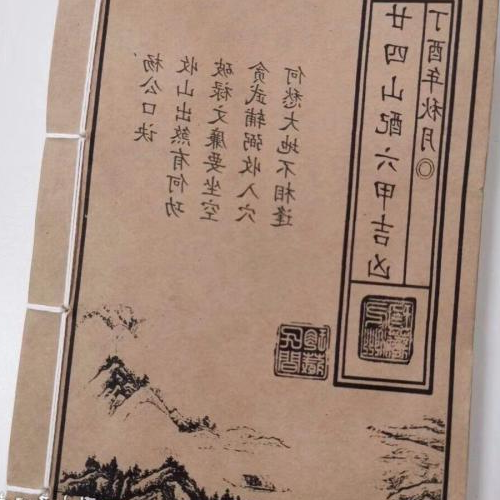 杨公口诀
收山出煞有何功
破禄文廉要坐空
贪武辅弼收入穴
何愁大地不相逢
廿四山配六甲吉凶
丁酉年秋月◎